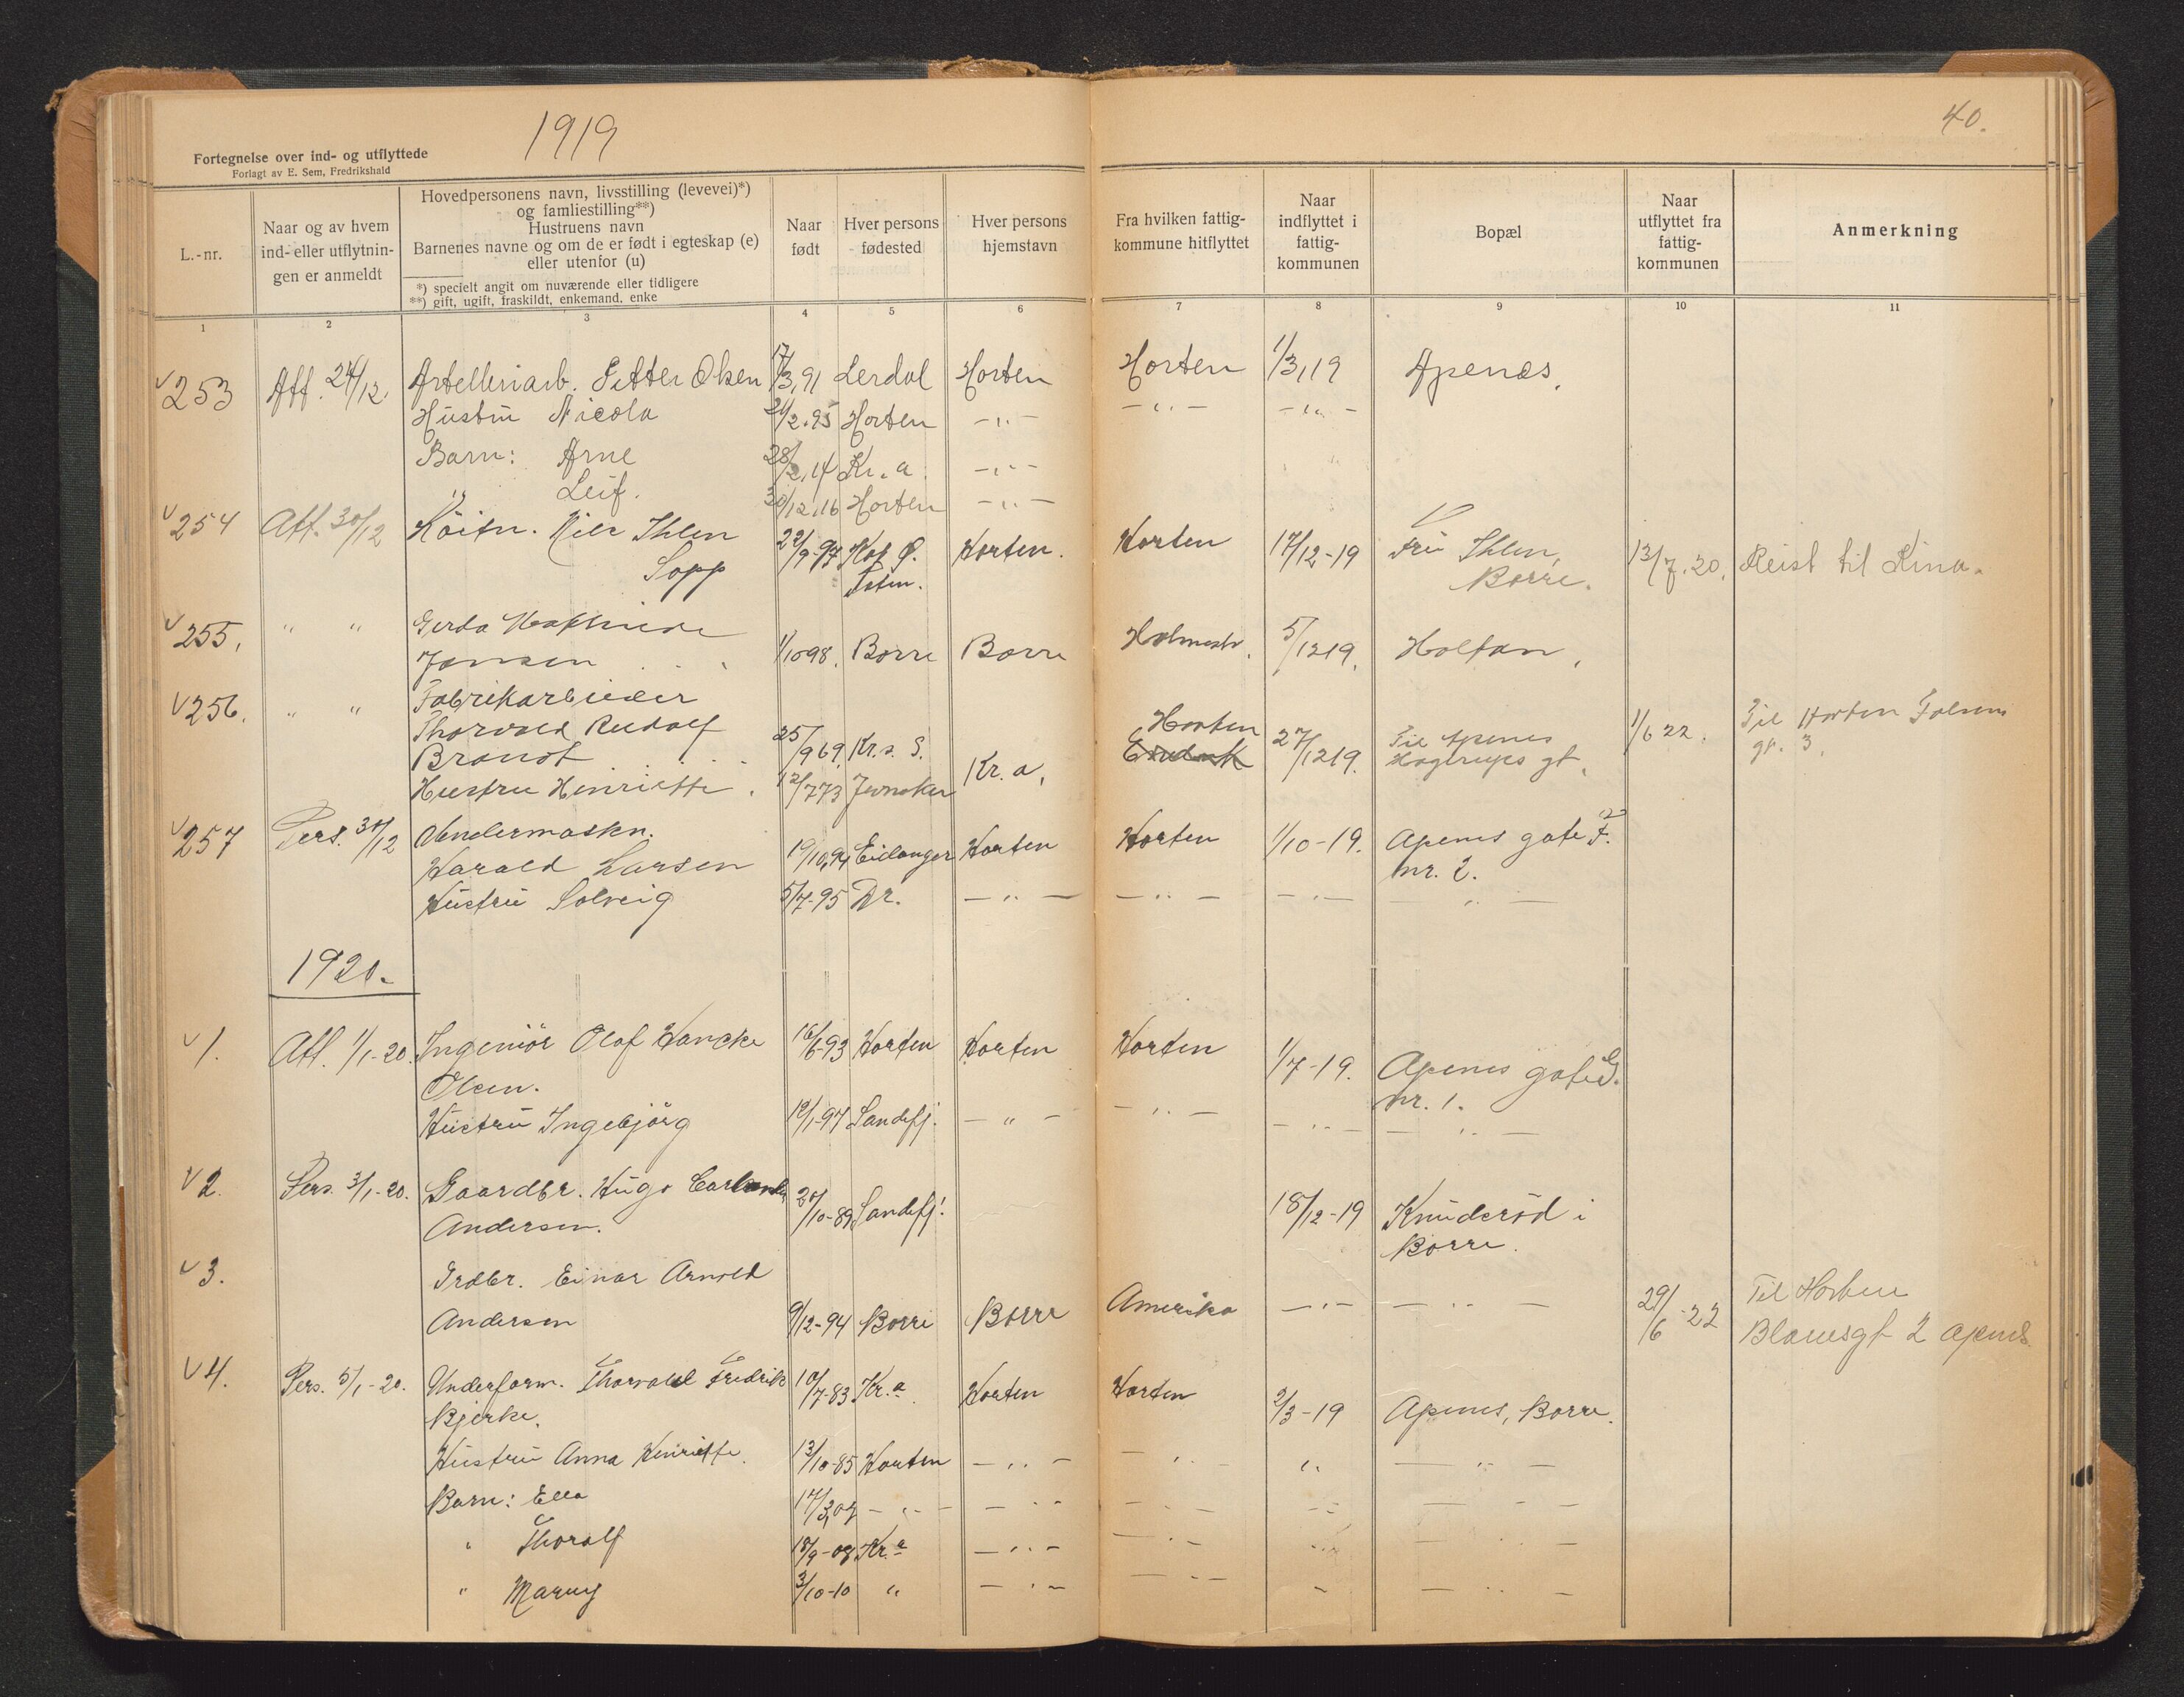 1919
40.
Fortegnelse over ind- og utflyttede
Forlagt av E. Sem, Fredrikshald
L.-nr.
Naar og av hvem
ind- eller utflytnin-
gen er anmeldt
Hovedpersonens navn, livsstilling (levevei)*)
og famliestilling**)
Hustruens navn
Barnenes navne og om de er født i egteskap (e)
eller utenfor (u)
*) specielt angit om nuværende eller tidligere
**) gift, ugift, fraskildt, enkemand, enke
Naar
født
Hver persons
fødested
Hver persons
hjemstavn
Fra hvilken fattig-
kommune hitflyttet
Naar
indflyttet i
fattig-
kommunen
Bopæl
Naar
utflyttet fra
fattig-
kommunen
Anmerkning
1 2 3 4 5 6 7 8 9 10 11
v 253 Att. 24/12. Artelleriarb. Petter Olsen 17/3,91 Lerdal Horten Horten 1/3,19 Apenes.
Hustru Nicola 24/2.95 Horten -"- -"- -"-
Barn: Arne 28/2,14 Kr.a. -"-
" Leif. 30/12,16 Horten -"-
v 254 Att. 30/12 Nils Ihlen 22/9-97 Hof Ø. Horten. Horten 17/12-19 Fru Ihlen, 13/7.20. Reist til Kina.
Sopp Toten. Borre.
v 255. " " Gerda
Jansen 1/1098. Borre Borre Holmestr. 5/1219. Holtan.
v 256. " " Fabrikarbeider
Thorvald Rudolf Horten Til Horten
Brandt 25/969. Kr.s. S. Kr.a. 27/1219. Til Apenes 1/622. gt. 3.
Hustru Henriette. 12/773 Hagerups gt.
v 257 Pers. 30/12 Undermaskn.
Harald Larsen 19/10,94 Eidanger Horten Horten 1/10-19. Apenes gate F.
nr. 2.
Hustru Solveig 5/7-95 Dr. -"- -"- -"- -"-
1920.
v 1. Att. 1/1-20. Ingeniör Olaf Hancke 16/6-93 Horten Horten Horten 1/7-19. Apenes gate G.
Olsen. nr. 1.
Hustru Ingebjörg 19/1-94 Sandefj. -"- -"- -"- -"-
v 2. Pers. 3/1-20. Gaardbr. Hugo 20/10-89 Sandefj. 18/12-19 Knudsröd i
Andersen. Borre.
v 3. Grdbr. Einar Arnold
Andersen 9/12-94 Borre Borre Amerika -"- -"- 29/6-22 Til Horten
Blaaesgt 2 Apenes
v 4. Pers. 5/1-20. Underform. Thorvald Fredrik 10/7-83 Kr.a Horten Horten 2/3-19 Apenes, Borre.
Bjerke.
Hustru Anna Henriette. 13/10-85 Horten -"- -"- " -"-
Barn: Ella 17/3,07 -"- -"- -"- -"- -"-
" Thoralf 18/9-08 Kr.a -"- -"- -"- -"-
" Marny 3/10-10 " -"- -"- " -"-